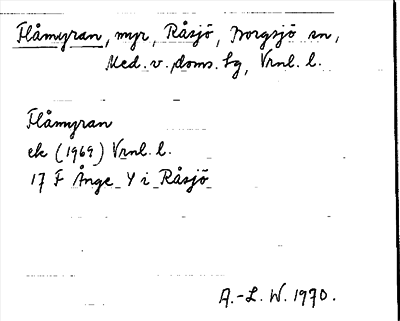 Flåmyran, myr, Råsjö, Borgsjö sn,
Med. v. doms. hg, Vrnl. l.
Flåmyran
ek (1969) Vrnl. l.
17 F Ånge Y i Råsjö
A.-L. W. 1970.